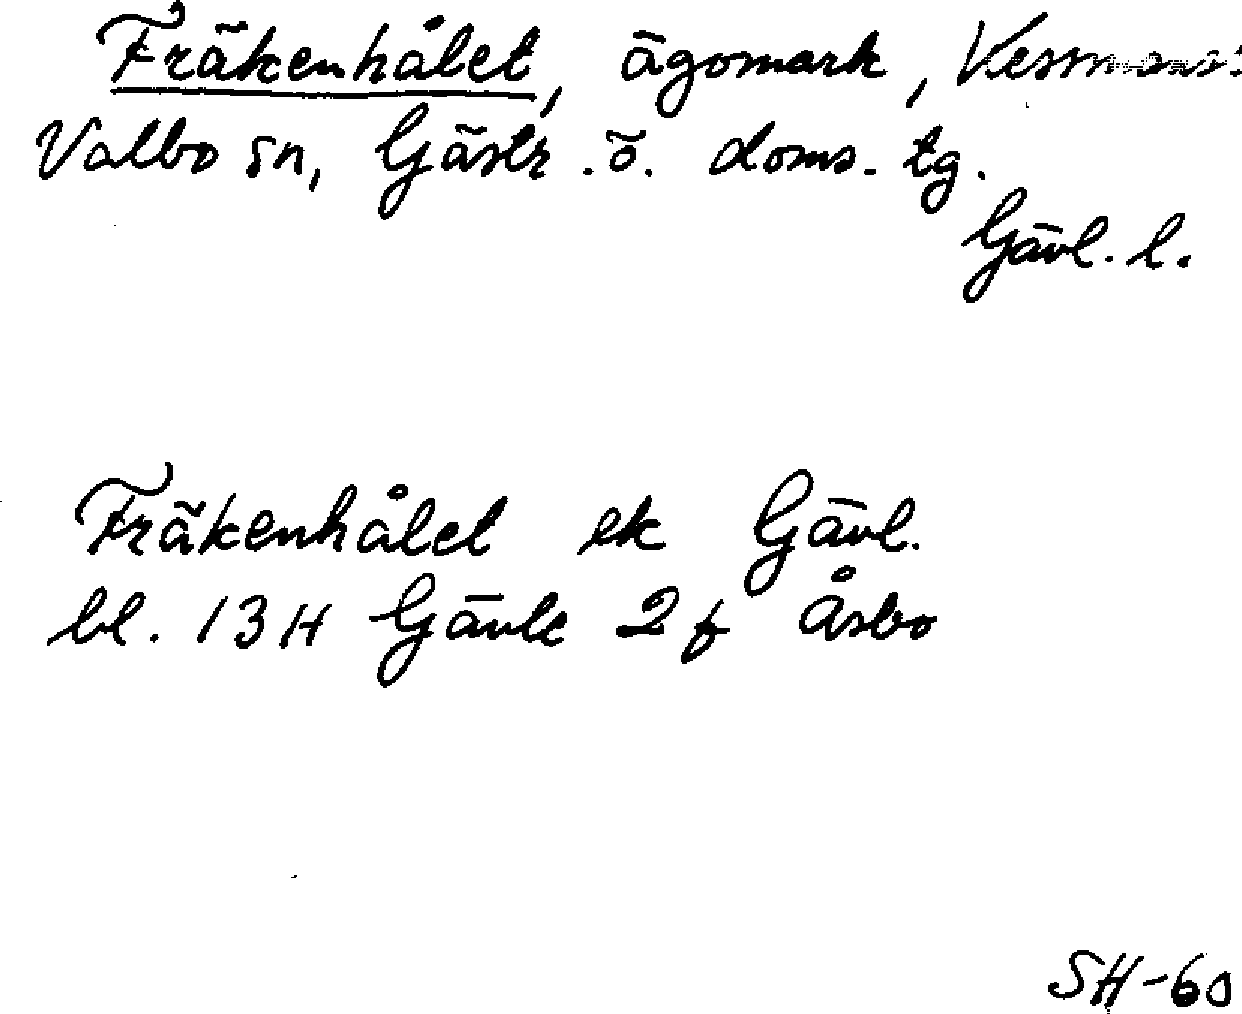 Fräkenhålet, ägomark,
Valbo sn, Gästr. ö. doms. tg.
Gävl. l.
Fräkenhålet ek Gävl.
bl. 13H Gävle 2f Åsbo
SH-60